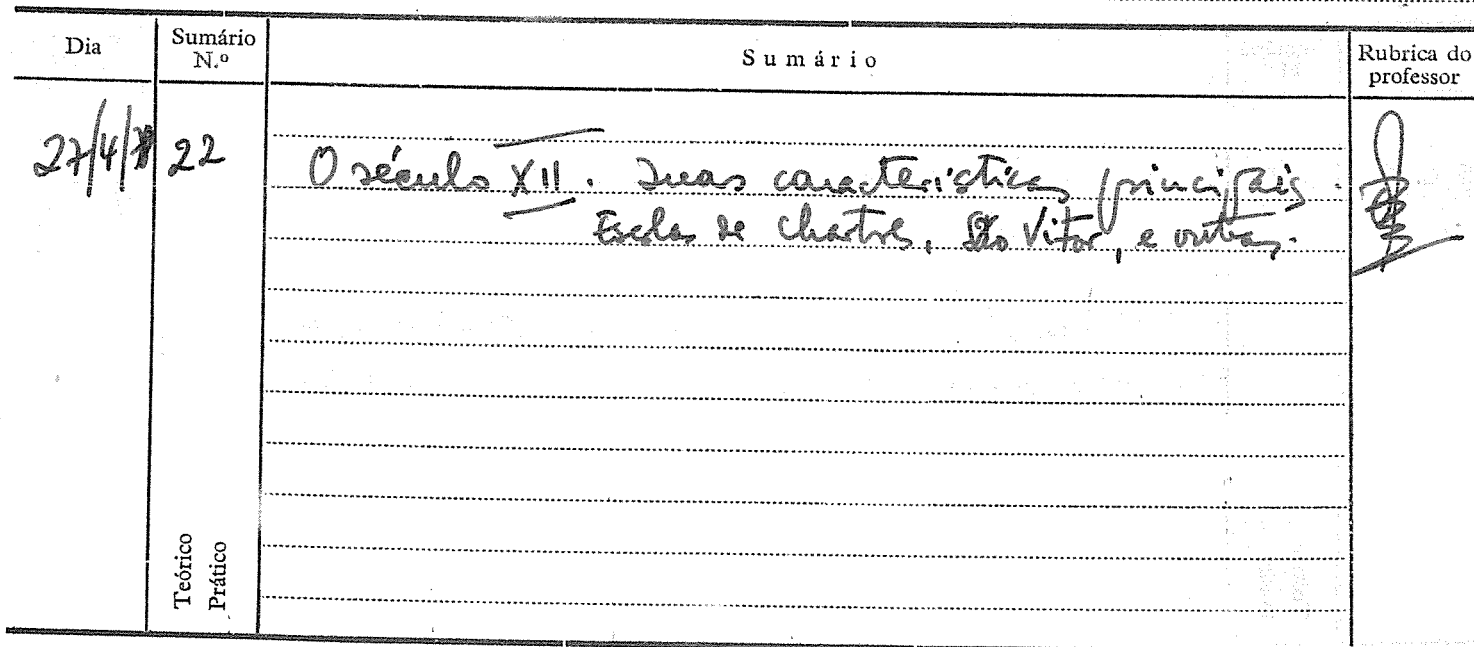 Dia
Sumário N.º
Sumário
Rubrica do professor
27/4/
22
O século XII. Suas características principais.
Escolas de Chartres, São Vitor, e outras.
Teórico
Prático